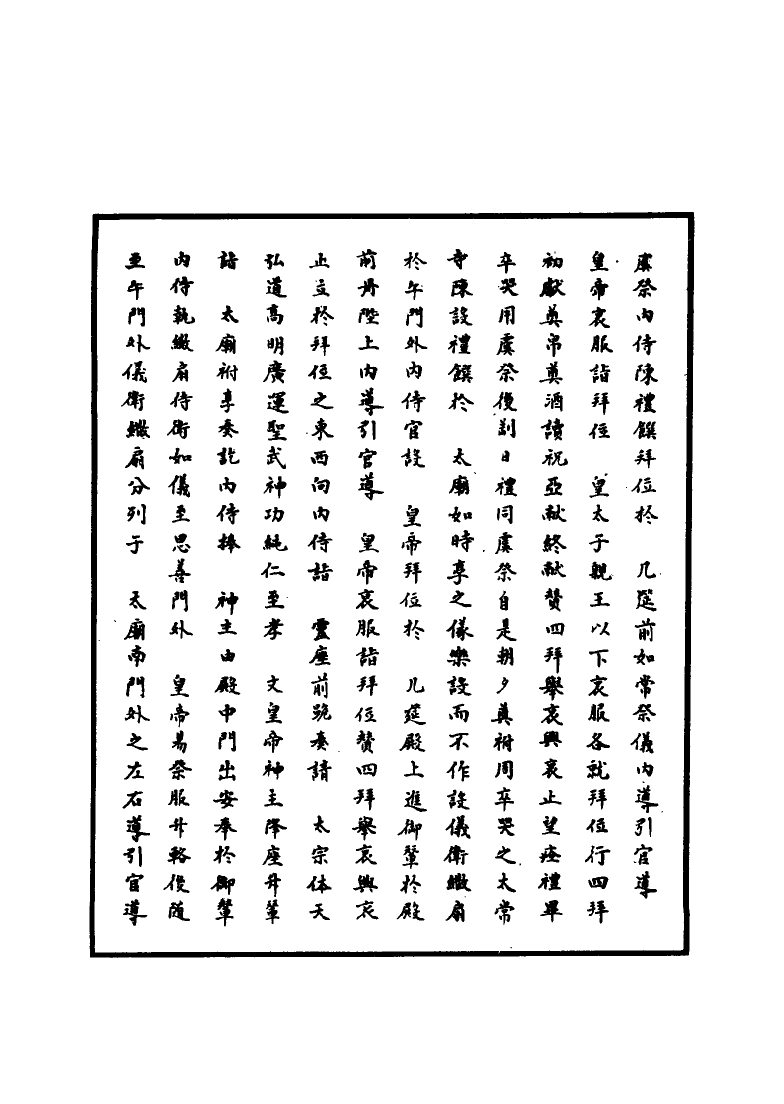 虞祭內侍陳禮饌拜位於　几筵前如常祭儀內導引官導
皇帝衰服詣拜位　皇太子親王以下衰服各就拜位行四拜
初獻奠帛奠酒讀祝亞獻終獻贊四拜舉哀興哀止望瘞禮畢
卒哭用虞祭後剛日禮同虞祭自是朝夕奠祔周卒哭之太常
寺陳設禮饌於　太廟如時享之儀樂設而不作設儀衛繖扇
於午門外內侍官設　皇帝拜位於　几筵殿上進御輦於殿
前丹陛上內導引官導　皇帝衰服詣拜位贊四拜舉哀興哀
止立於拜位之東西向內侍詣　靈座前跪奏請　太宗体天
弘道高明廣運聖武神功純仁至孝　文皇帝神主降座升輦
詣　太廟祔享奏訖內侍捧　神主由殿中門出安奉於御輦
內侍執繖扇侍衛如儀至思善門外　皇帝易祭服升輅後随
至午門外儀衛繖扇分列于　太廟南門外之左右導引官導